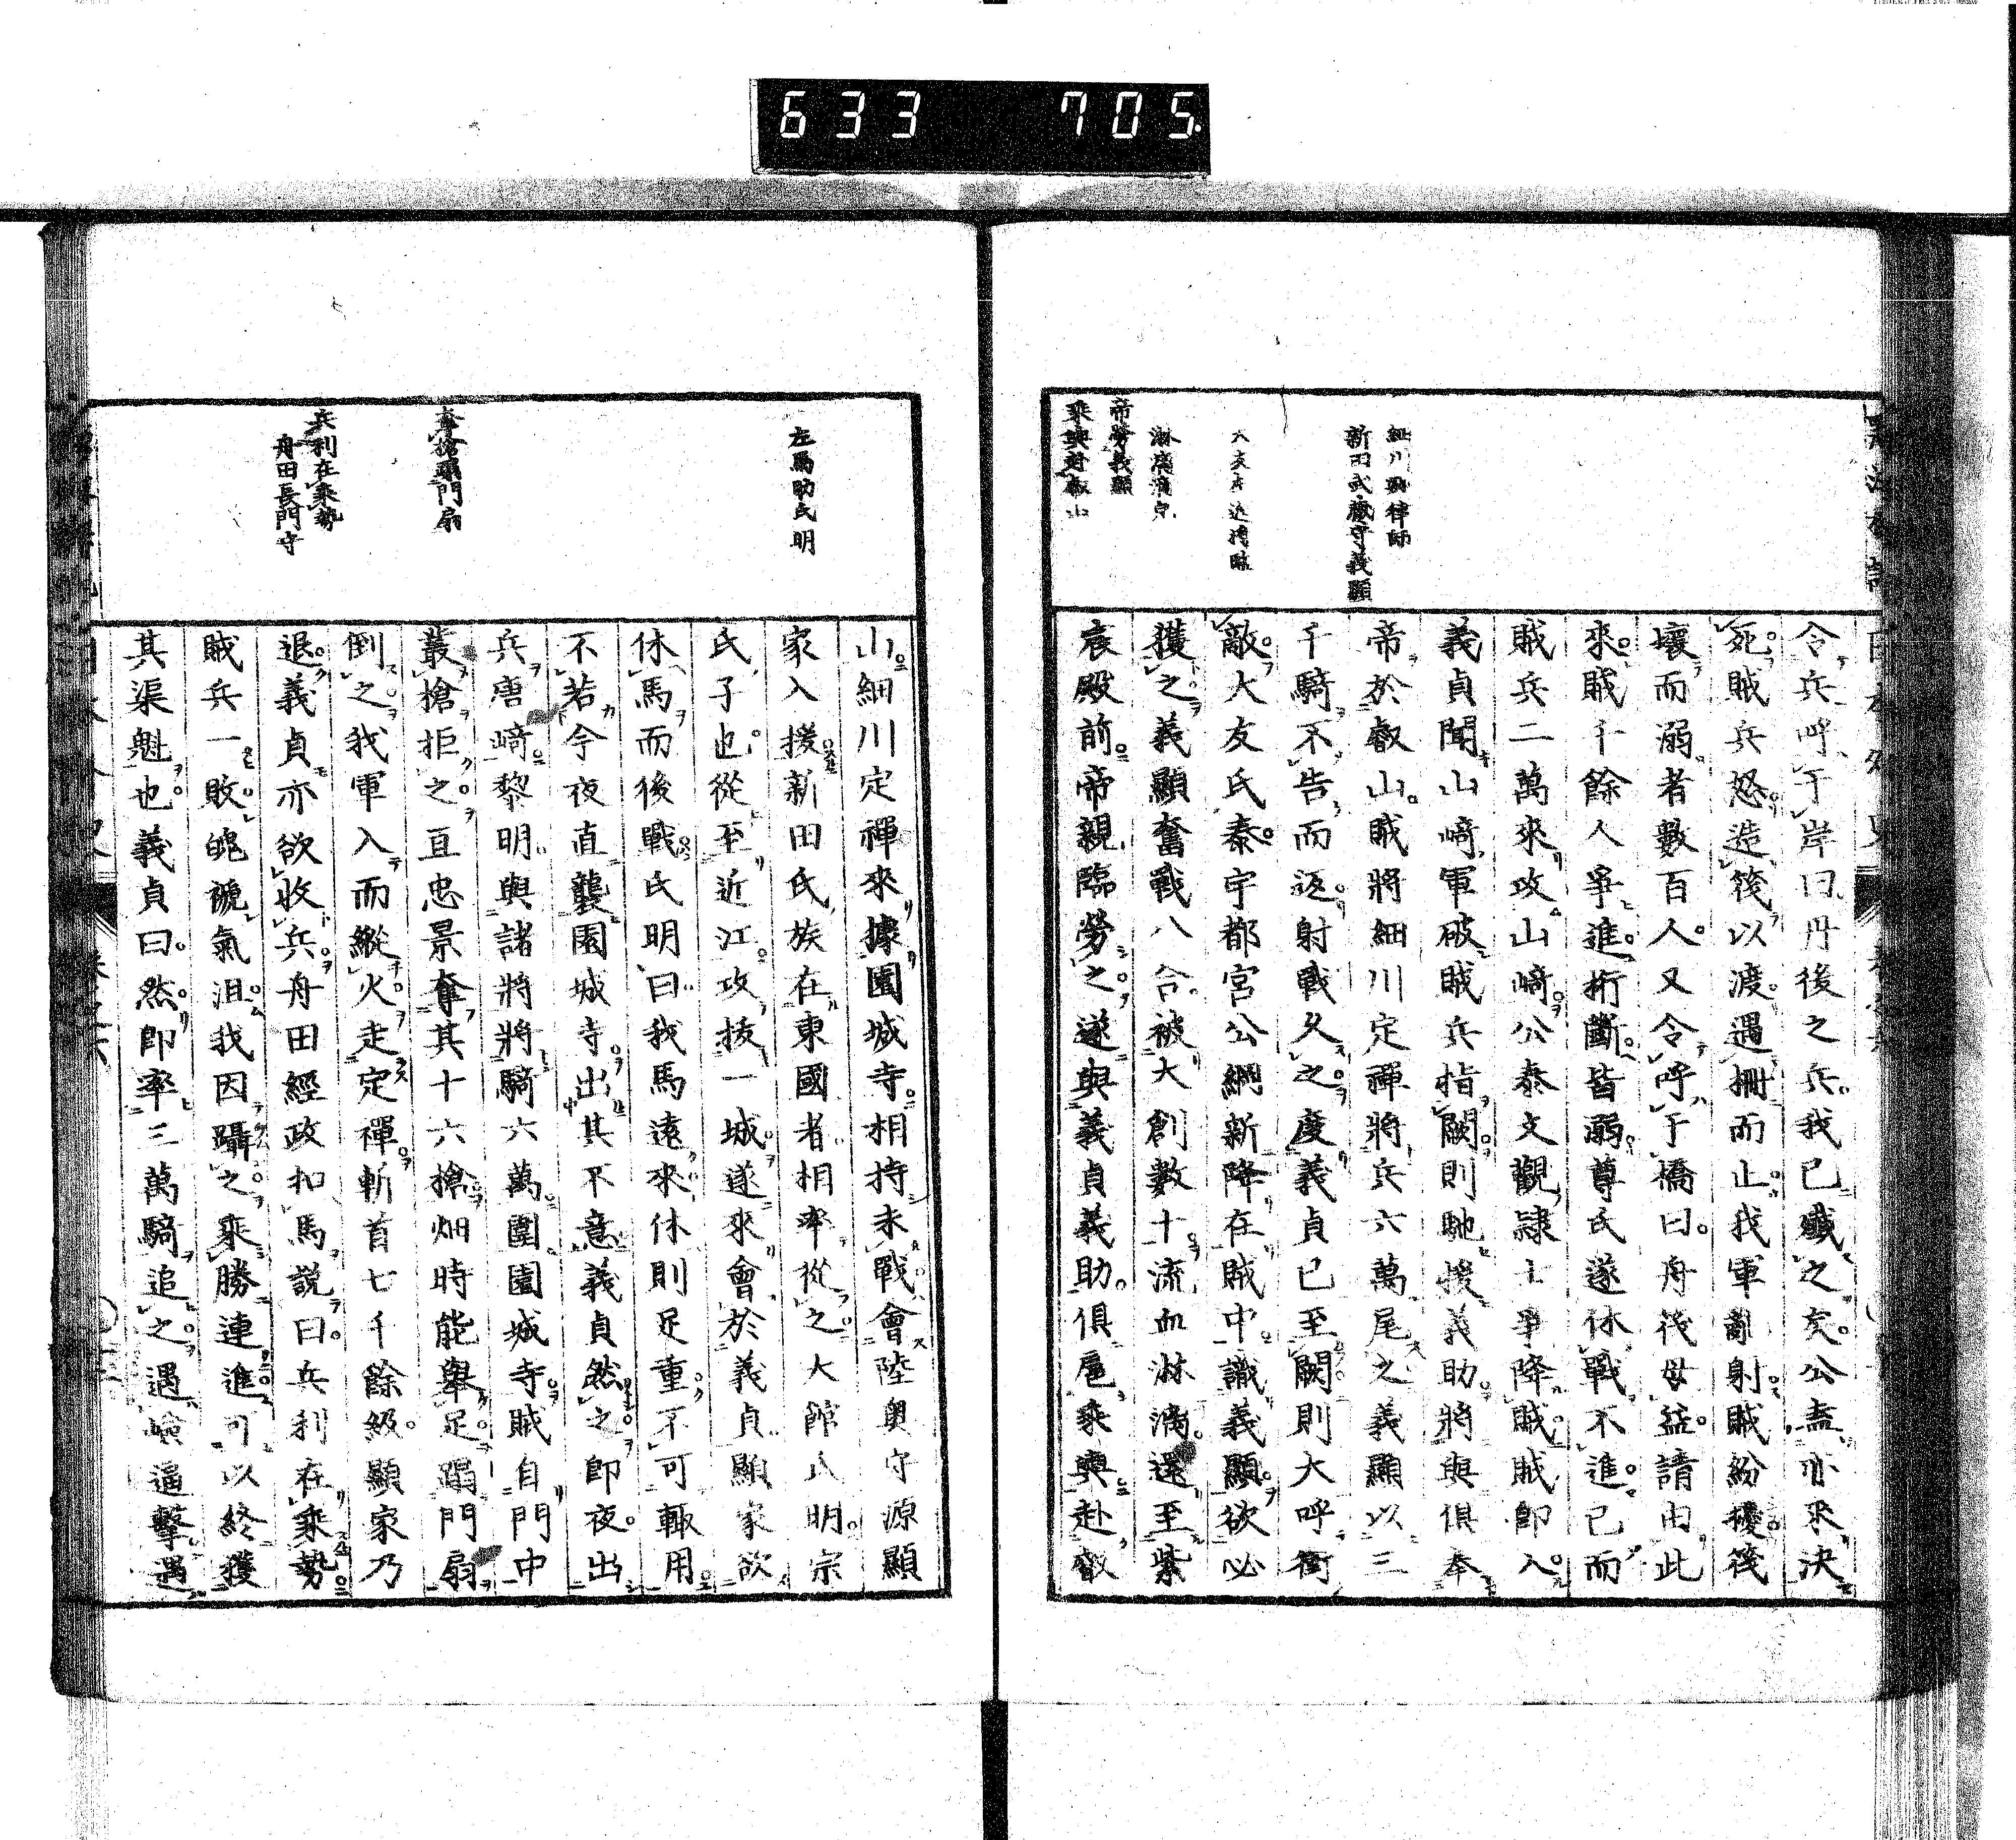 633 705
細川卿律師
新田武藏守義顯
大友左近將監
淋漓滴皃
帝勞義顯
乘輿赴叡山
令兵呼于岸曰丹後之兵我已殲之矣公盍亦來決
死賊兵怒造筏以渡遇柵而止我軍亂射賊紛擾筏
壞而溺者數百人又令呼于橋曰舟筏毋益請由此
來賊千餘人爭進桁斷皆溺尊氏遂休戰不進已而
賊兵二萬來攻山﨑公泰文觀隷士爭降賊賊卽入
義貞聞山﨑軍破賊兵指闕則馳援義助將與俱奉
帝於叡山賊將細川定禪將兵六萬尾之義顯以三
千騎不告而返射戰久之度義貞已至闕則大呼衝
敵大友氏泰宇都宮公綱新降在賊中識義顯欲必
獲之義顯奮戰八合被大創數十流血淋漓還至紫
宸殿前帝親臨勞之遂與義貞義助俱扈乘輿赴叡
左馬助氏明
奪槍蹋門扇
兵利在乘勢
舟田長門守
山細川定禪來據園城寺相持未戰會陸奧守源顯
家入援新田氏族在東國者相率從之大館氏明宗
氏子也從至近江攻拔一城遂來會於義貞顯家欲
休馬而後戰氏明曰我馬遠來休則足重不可輙用
不若今夜直襲園城寺出其不意義貞然之卽夜出
兵唐﨑黎明與諸將將騎六萬圍園城寺賊自門中
叢槍拒之亘忠景奪其十六槍畑時能舉足蹋門扇
倒之我軍入而縱火走定禪斬首七千餘級顯家乃
退義貞亦欲收兵舟田經政扣馬說曰兵利在乘勢
賊兵一敗魄褫氣沮我因躡之乘勝連進可以終獲
其渠魁也義貞曰然卽率三萬騎追之遇嶮逼擊遇